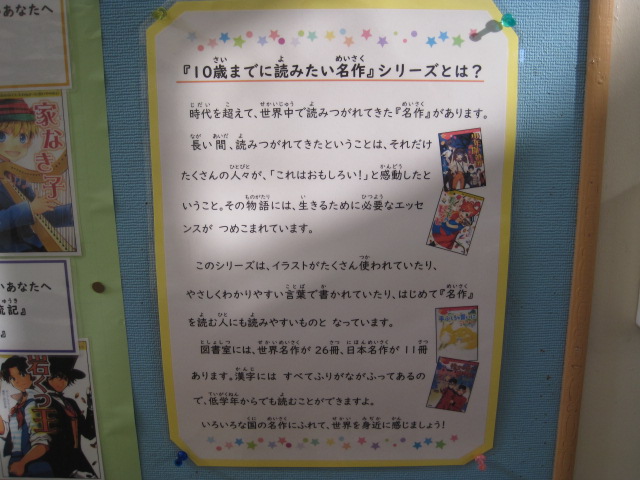 いあなたへ
家なき子
いあなたへ
流記』
』
岩くつ王
『10歳までに読みたい名作』シリーズとは?
時代を超えて、世界中で読みつがれてきた『名作』があります。
長い間、読みつがれてきたということは、それだけ
たくさんの人々が、「これはおもしろい!」と感動したと
いうこと。その物語には、生きるために必要なエッセ
ンスが つめこまれています。
このシリーズは、イラストがたくさん使われていたり、
やさしくわかりやすい言葉で書かれていたり、はじめて『名作』
を読む人にも読みやすいものと なっています。
図書室には、世界名作が 26冊、日本名作が 11冊
あります。漢字には すべてふりがながふってあるの
で、低学年からでも読むことができますよ。
いろいろな国の名作にふれて、世界を身近に感じましょう!